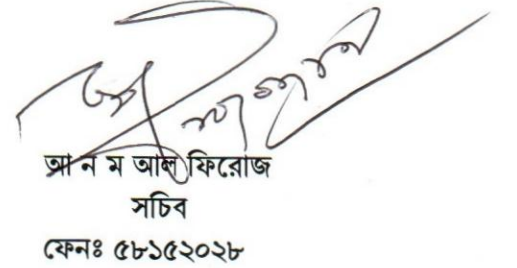 আ ন ম আল ফিরোজ
সচিব
ফেনঃ ৫৮১৫২০২৮